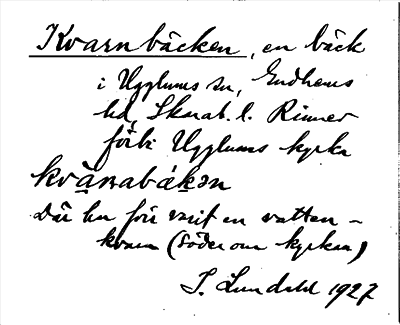 Kvarnbäcken, en bäck
i Ugglums sn, Gudhems
hd, Skarab. l. Rinner
förbi Ugglums kyrka
kvànabákən
Där har förr varit en vatten-
kvarn (söder om kyrkan)
S. Lundahl 1927